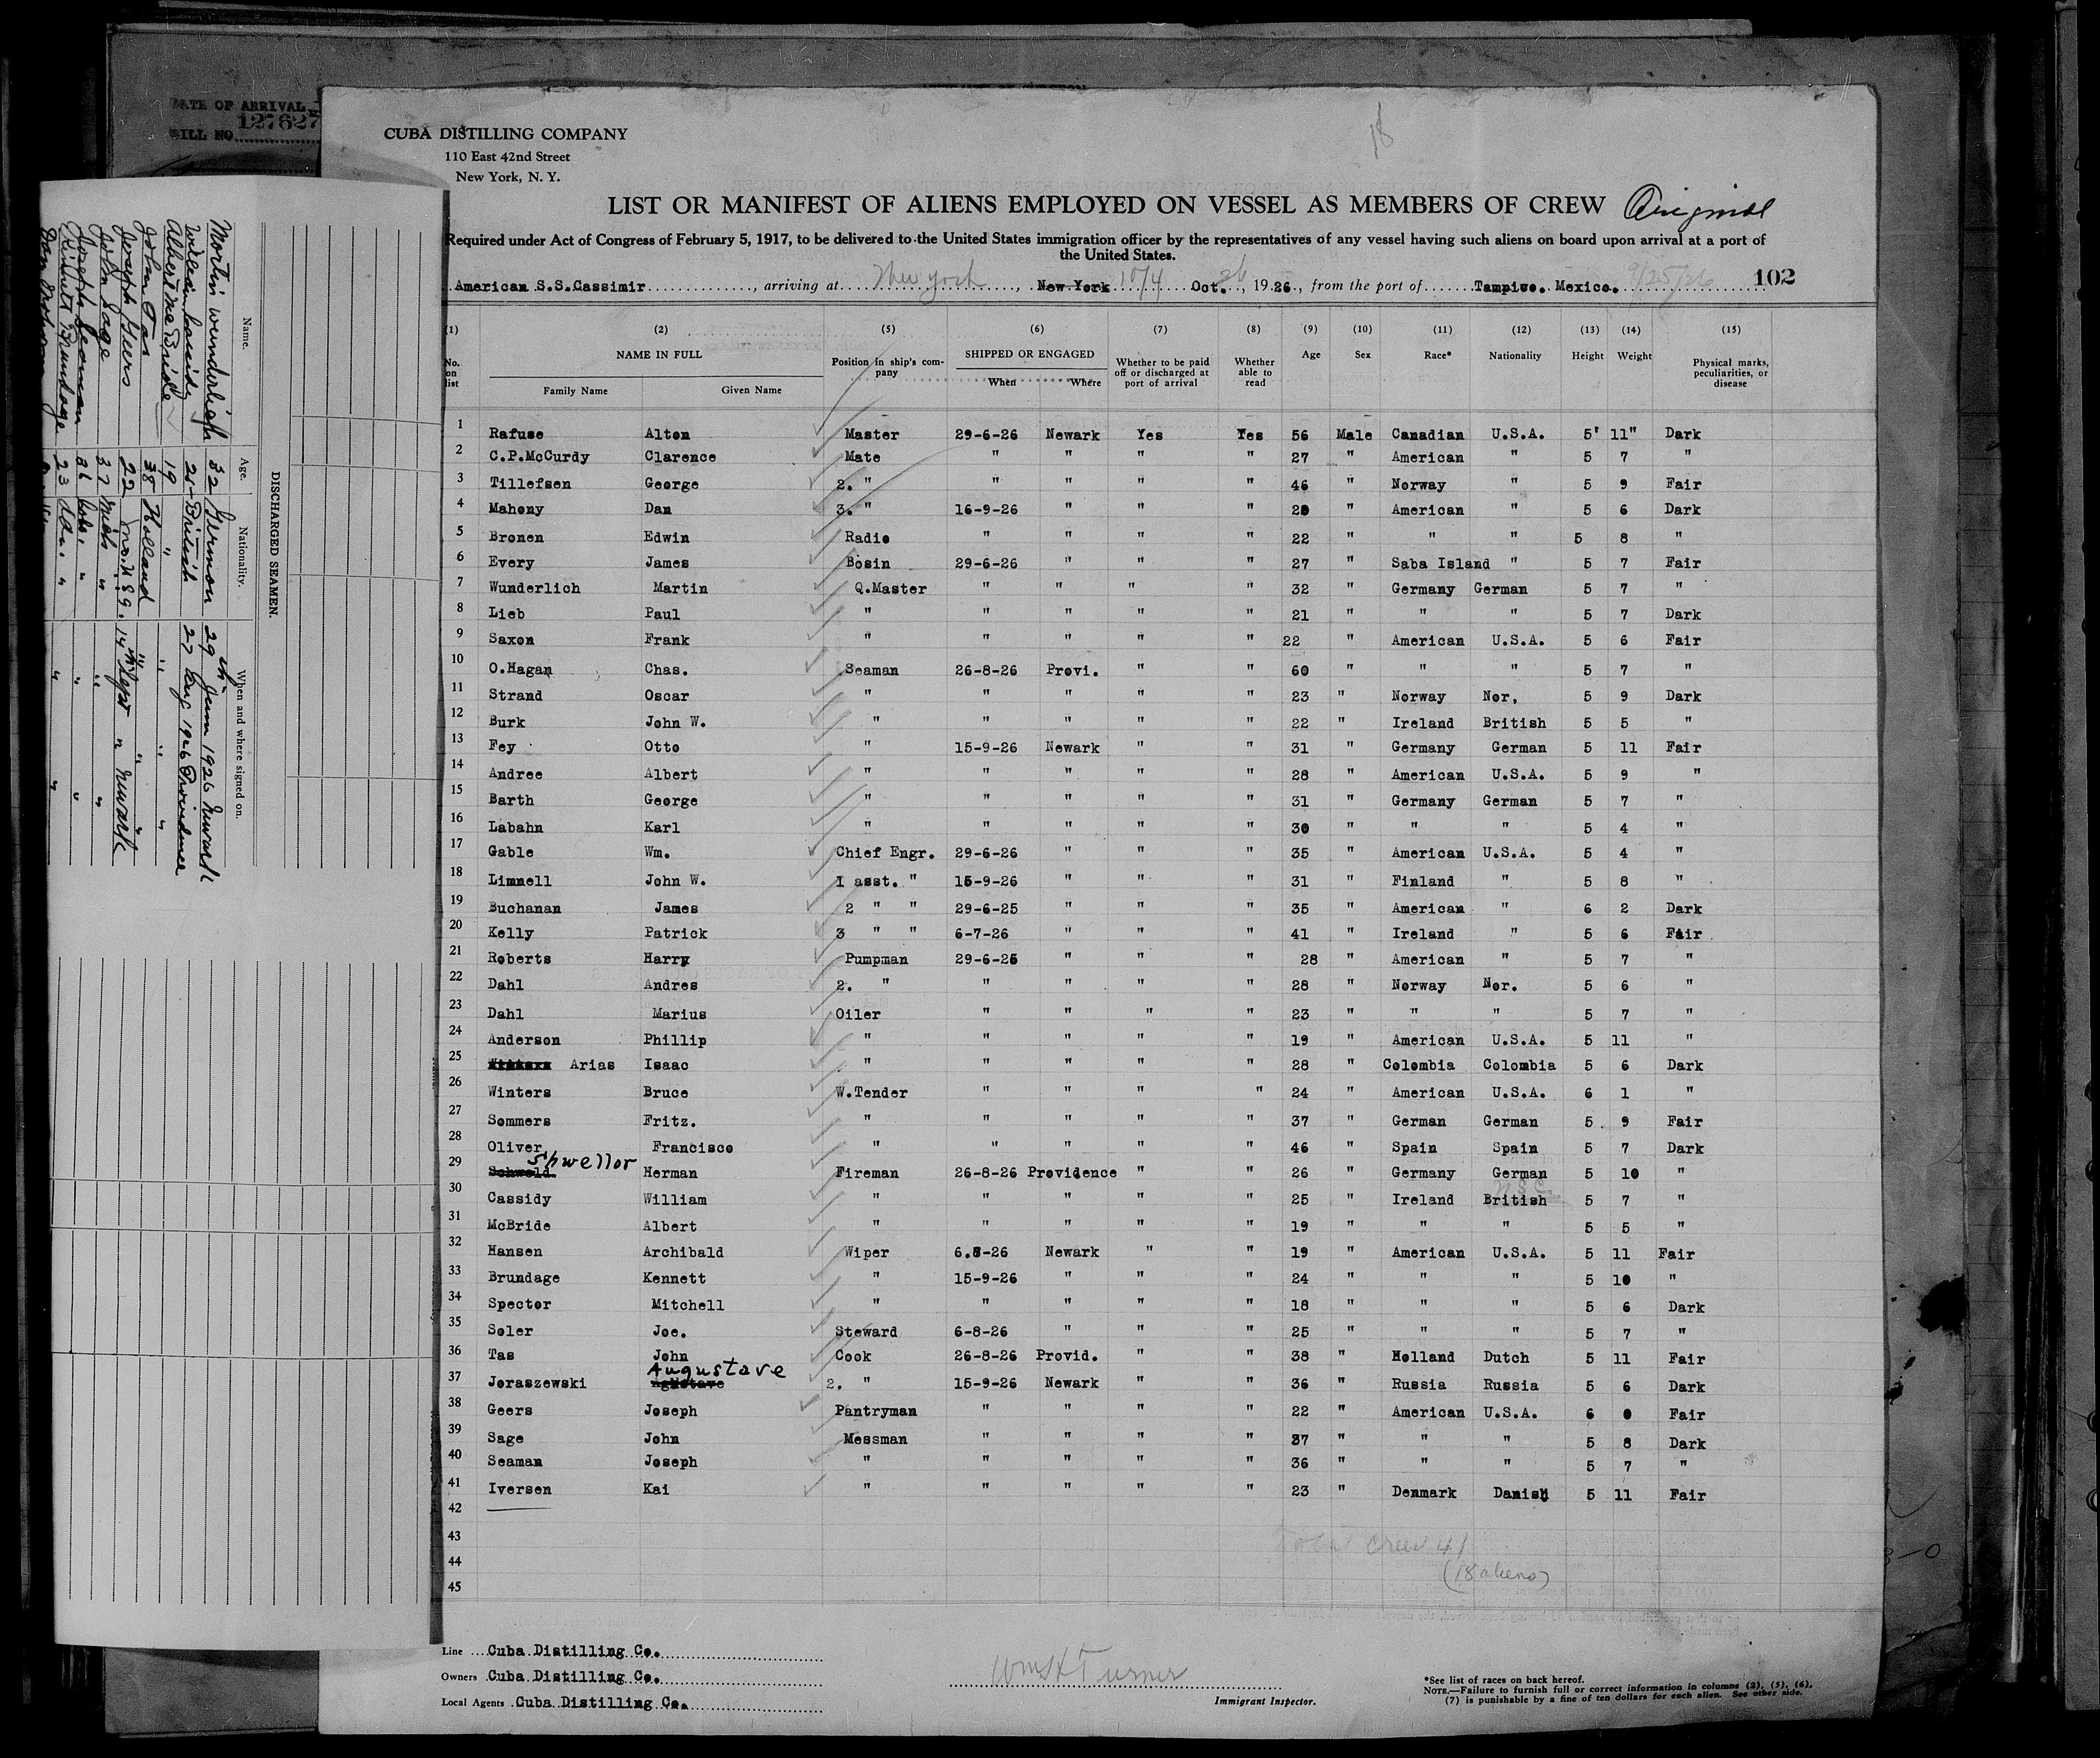 DATE OF ARRIVAL
BILL NO. 127627
CUBA DISTILLING COMPANY
110 East 42nd Street
New York, N. Y.
18
LIST OR MANIFEST OF ALIENS EMPLOYED ON VESSEL AS MEMBERS OF CREW Original
Required under Act of Congress of February 5, 1917, to be delivered to the United States immigration officer by the representatives of any vessel having such aliens on board upon arrival at a port of
the United States.
American S.S.Cassimir, arriving at New York, New York 10/4 Oct. 26, 1926, from the port of Tampico. Mexico. 9/25/26 102
(1) (2) (5) (6) (7) (8) (9) (10) (11) (12) (13) (14) (15)
No. on list NAME IN FULL Family Name Given Name Position in ship's company SHIPPED OR ENGAGED When Where Whether to be paid off or discharged at port of arrival Whether able to read Age Sex Race* Nationality Height Weight Physical marks, peculiarities, or disease
1 Rafuse Alton Master 29-6-26 Newark Yes Yes 56 Male Canadian U.S.A. 5' 11" Dark
2 C.P.McCurdy Clarence Mate " " " " 27 " American " 5 7 "
3 Tillefsen George 2. " " " " " 46 " Norway " 5 9 Fair
4 Mahony Dan 3. " 16-9-26 " " " 29 " American " 5 6 Dark
5 Bronen Edwin Radio " " " " 22 " " " 5 8 "
6 Every James Bosin 29-6-26 " " " 27 " Saba Island " 5 7 Fair
7 Wunderlich Martin Q.Master " " " " 32 " Germany German 5 7 "
8 Lieb Paul " " " " " 21 " " " 5 7 Dark
9 Saxon Frank " " " " " 22 " American U.S.A. 5 6 Fair
10 O.Hagan Chas. Seaman 26-8-26 Provi. " " 60 " " " 5 7 "
11 Strand Oscar " " " " " 23 " Norway Nor. 5 9 Dark
12 Burk John W. " " " " " 22 " Ireland British 5 5 "
13 Fey Otto " 15-9-26 Newark " " 31 " Germany German 5 11 Fair
14 Andree Albert " " " " " 28 " American U.S.A. 5 9 "
15 Barth George " " " " " 31 " Germany German 5 7 "
16 Labahn Karl " " " " " 30 " " " 5 4 "
17 Gable Wm. Chief Engr. 29-6-26 " " " 35 " American U.S.A. 5 4 "
18 Limnell John W. I asst. " 15-9-26 " " " 31 " Finland " 5 8 "
19 Buchanan James 2 " " 29-6-25 " " " 35 " American " 6 2 Dark
20 Kelly Patrick 3 " " 6-7-26 " " " 41 " Ireland " 5 6 Fair
21 Roberts Harry Pumpman 29-6-26 " " " 28 " American " 5 7 "
22 Dahl Andres 2. " " " " " 28 " Norway Nor. 5 6 "
23 Dahl Marius Oiler " " " " 23 " " " 5 7 "
24 Anderson Phillip " " " " " 19 " American U.S.A. 5 11 "
25 Winters Arias Isaac " " " " " 28 " Colombia Colombia 5 6 Dark
26 Winters Bruce W.Tender " " " " 24 " American U.S.A. 6 1 "
27 Sommers Fritz. " " " " " 37 " German German 5 9 Fair
28 Oliver Francisco " " " " " 46 " Spain Spain 5 7 Dark
29 Schweld Shwellor Herman Fireman 26-8-26 Providence " " 26 " Germany German 5 10 "
30 Cassidy William " " " " " 25 " Ireland British 5 7 "
31 McBride Albert " " " " " 19 " " " 5 5 "
32 Hansen Archibald Wiper 6.8-26 Newark " " 19 " American U.S.A. 5 11 Fair
33 Brundage Kennett " 15-9-26 " " " 24 " " " 5 10 "
34 Spector Mitchell " " " " " 18 " " " 5 6 Dark
35 Soler Joe. Steward 6-8-26 " " " 25 " " " 5 7 "
36 Tas John Cook 26-8-26 Provid. " " 38 " Holland Dutch 5 11 Fair
37 Joraszewski Augustave 2. " 15-9-26 Newark " " 36 " Russia Russia 5 6 Dark
38 Geers Joseph Pantryman " " " " 22 " American U.S.A. 6 0 Fair
39 Sage John Messman " " " " 37 " " " 5 8 Dark
40 Seaman Joseph " " " " " 36 " " " 5 7 "
41 Iversen Kai " " " " " 23 " Denmark Danish 5 11 Fair
42
43
44
45
Total crew 41
(18 aliens)
Line Cuba Distilling Co.
Owners Cuba Distilling Co.
Local Agents Cuba Distilling Co.
Wm H Turner
Immigrant Inspector.
*See list of races on back hereof.
NOTE.—Failure to furnish full or correct information in columns (2), (5), (6),
(7) is punishable by a fine of ten dollars for each alien. See other side.
DISCHARGED SEAMEN.
Name. Age. Nationality. When and where signed on.
Martin Wunderligh 32 German 29th June 1926 Newark
William Cassidy 25 British 27 Aug 1926 Providence
Albert McBride 19 " " "
John Tas 38 Holland " " "
Joseph Geers 22 14th Sept " Newark
John Sage 37 " " "
Joseph Seaman 36 " " "
Kennett Brundage 23 " " "